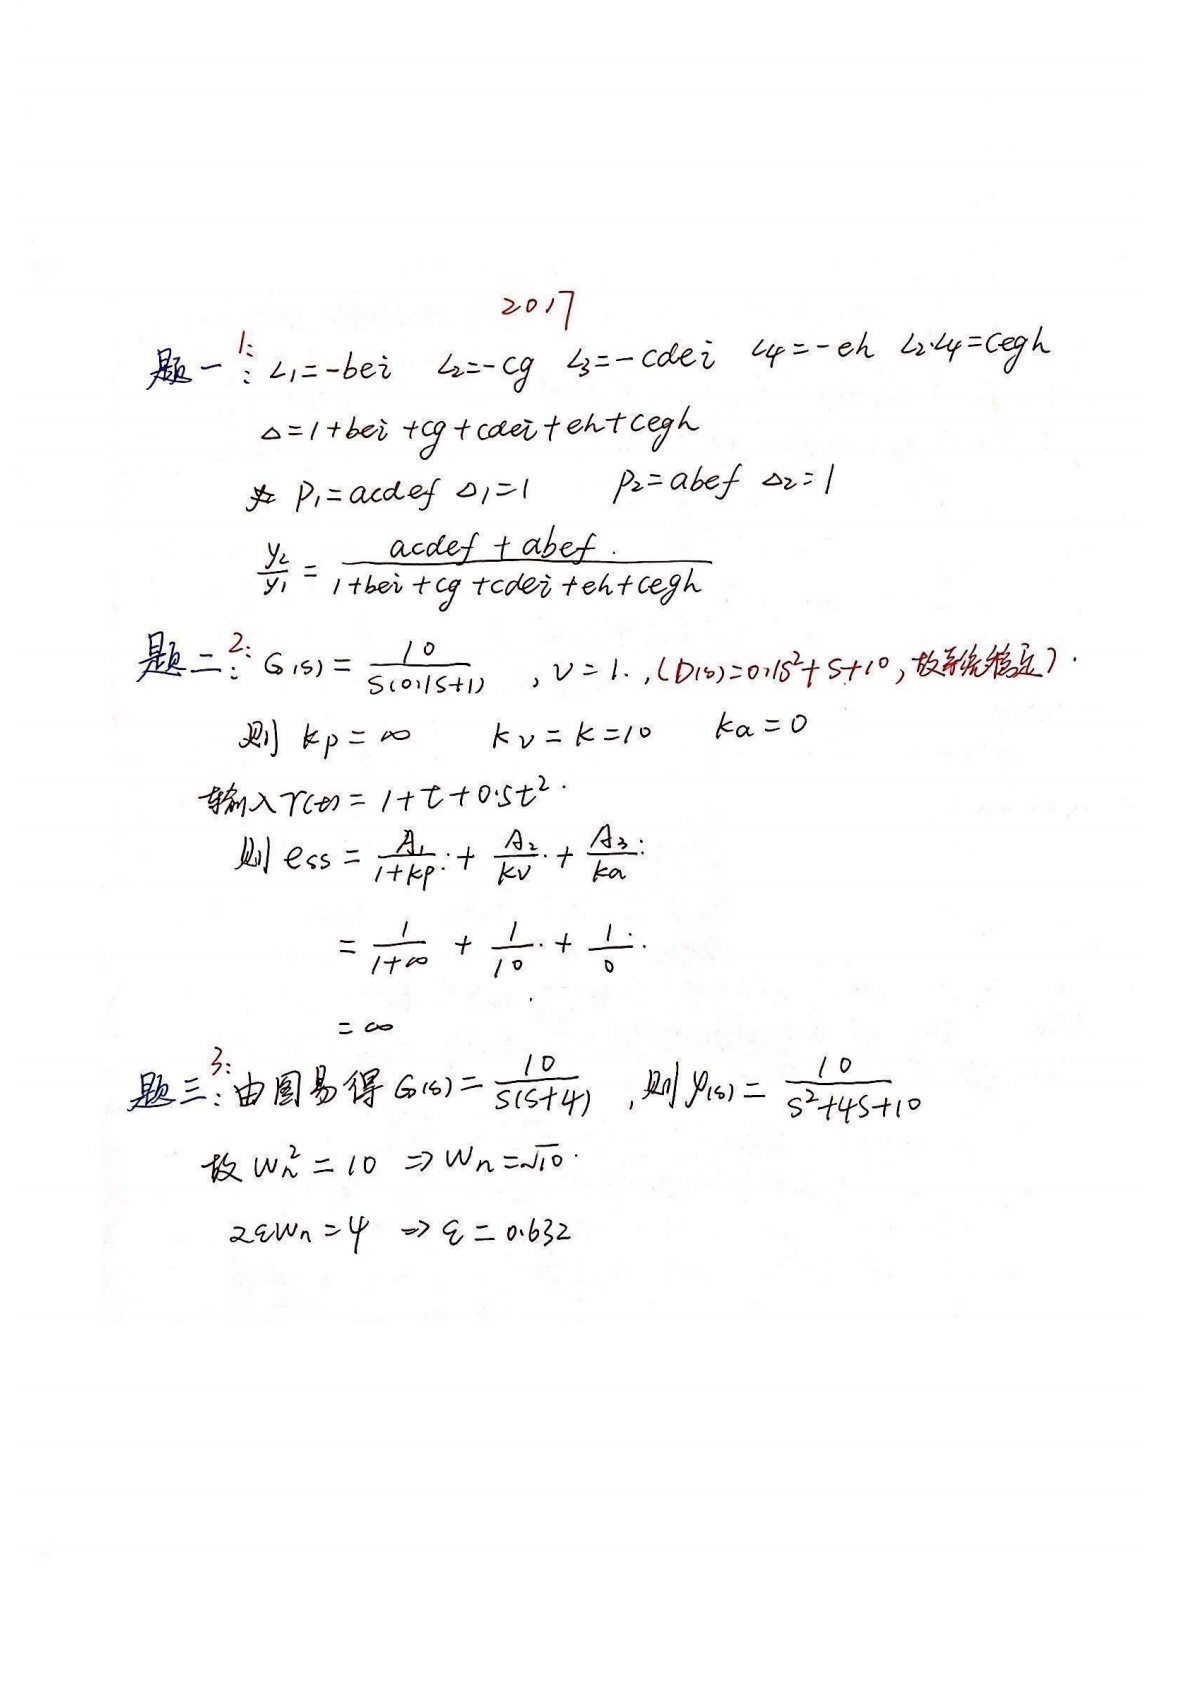 2017
题一1:: L1=-bei L2=-cg L3=-cdei L4=-eh L2·L4=cegh
Δ=1+bei+cg+cdei+eh+cegh
P1=acdef Δ1=1 P2=abef Δ2=1
y2/y1 = (acdef+abef)/(1+bei+cg+cdei+eh+cegh)
题二2:: G(s)=10/(s(0.1s+1)), ν=1., (D(s)=0.1s²+s+10, 故系统稳定).
则 kp=∞ kv=k=10 ka=0
输入r(t)=1+t+0.5t².
则 ess = A1/(1+kp) + A2/kv + A3/ka
= 1/(1+∞) + 1/10 + 1/0
=∞
题三3:: 由图易得G(s)=10/(s(s+4)), 则φ(s)=10/(s²+4s+10)
故 Wn²=10 ⇒ Wn=√10.
2ξWn=4 ⇒ ξ=0.632